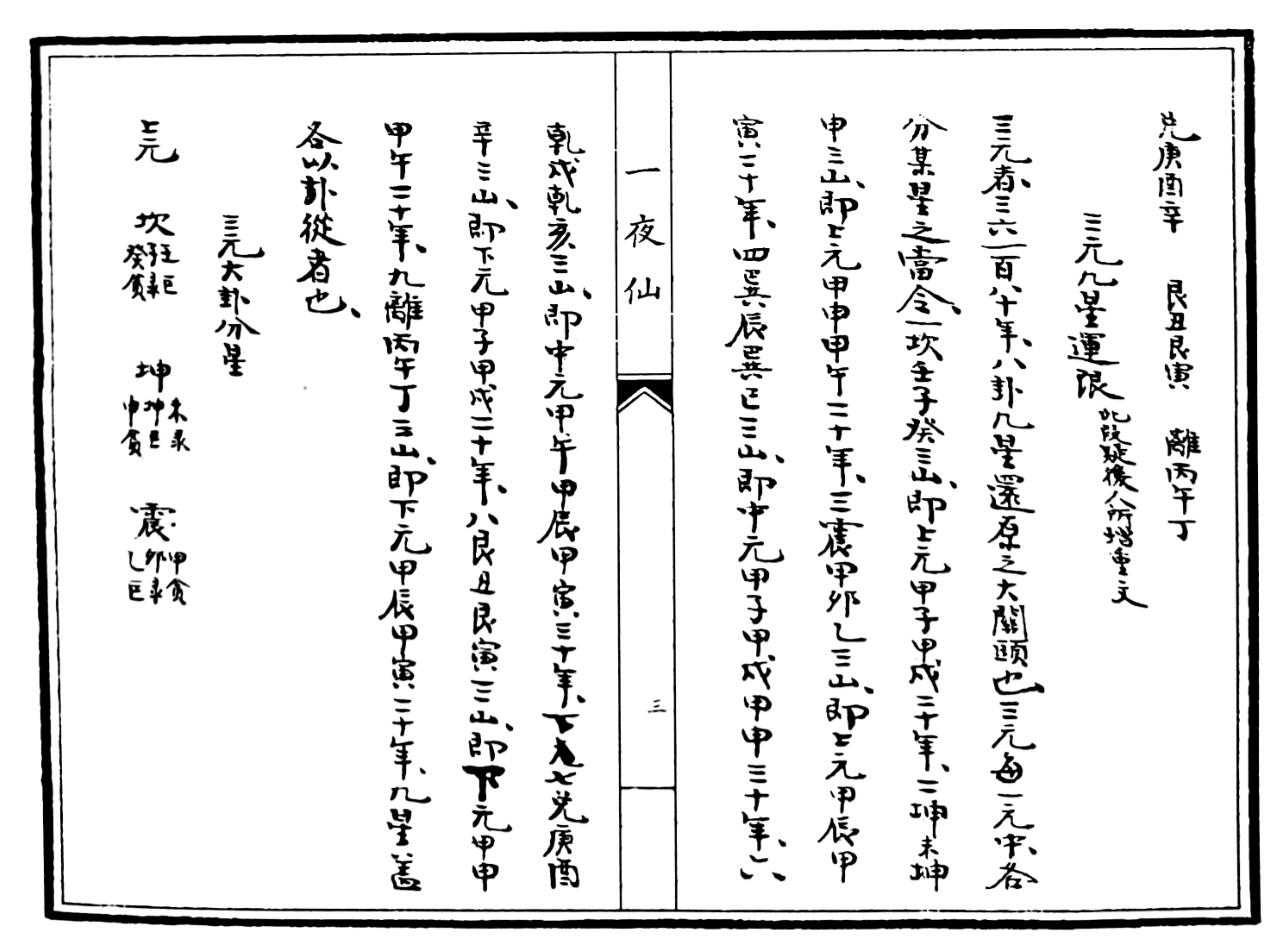 兌庚酉辛　艮丑艮寅　離丙午丁
三元九星運限 此段疑後人所增重文
三元者、三六一百八十年、八卦九星還原之大關頭也、三元每一元中、各
分某星之當令、一坎壬子癸三山、即上元甲子甲戌二十年、二坤未坤
申三山、即上元甲申甲午二十年、三震甲卯乙三山、即上元甲辰甲
寅二十年、四巽辰巽巳三山、即中元甲子甲戌甲申三十年、六
一夜仙
三
乾戌乾亥三山、即中元甲午甲辰甲寅三十年、下元七兌庚酉
辛三山、即下元甲子甲戌二十年、八艮丑艮寅三山、即下元甲申
甲午二十年、九離丙午丁三山、即下元甲辰甲寅二十年、九星蓋
各以卦從者也、
三元大卦分星
上元　坎 壬巨 子彔 癸貪　坤 未彔 坤巨 申貪　震 甲貪 卯彔 乙巨